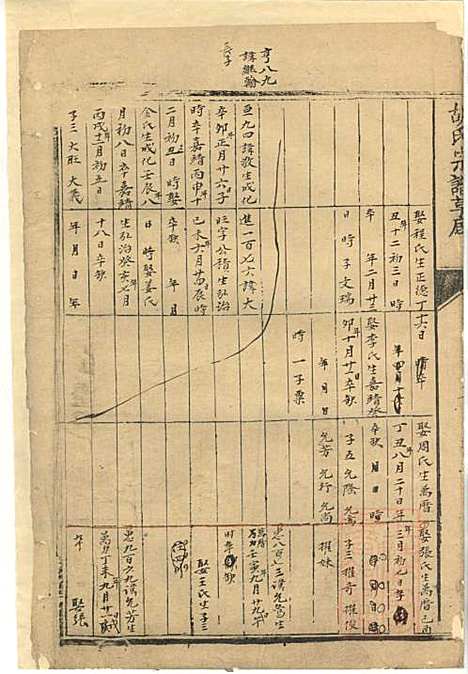 亨八九
諱繼翰
長子
胡氏宗譜亨屆
娶程氏生正德丁
丑十二初三日時
卒年二月廿三
日時子文瑞
娶李氏生嘉靖癸
卯十月廿一卒缺
年月日
時一子栗
娶周氏生萬曆
丁丑八月二十日
卒缺月日時
子五允隆允寓
允芳允行允尚
娶張氏生萬曆己酉
三月初九日
子三耀奇耀俊
耀妹
亘九四諱敖生成化
辛卯正月廿六子
時卒嘉靖丙申十
二月初五日時娶
金氏生成化壬辰八
月初八日卒嘉靖
丙戌十二月初五日
子三大旺大義
進一百七六諱大
旺字公積生弘治
己未六月廿四辰時
卒缺年月
日時娶姜氏
生弘治癸亥七月
十八日卒缺
年月日年
忠八百七五諱允寓生
萬曆壬寅九月廿九午
時卒缺
娶王氏生子三
忠九百六九諱允芳生
萬曆丁未九月廿一戌
年娶張